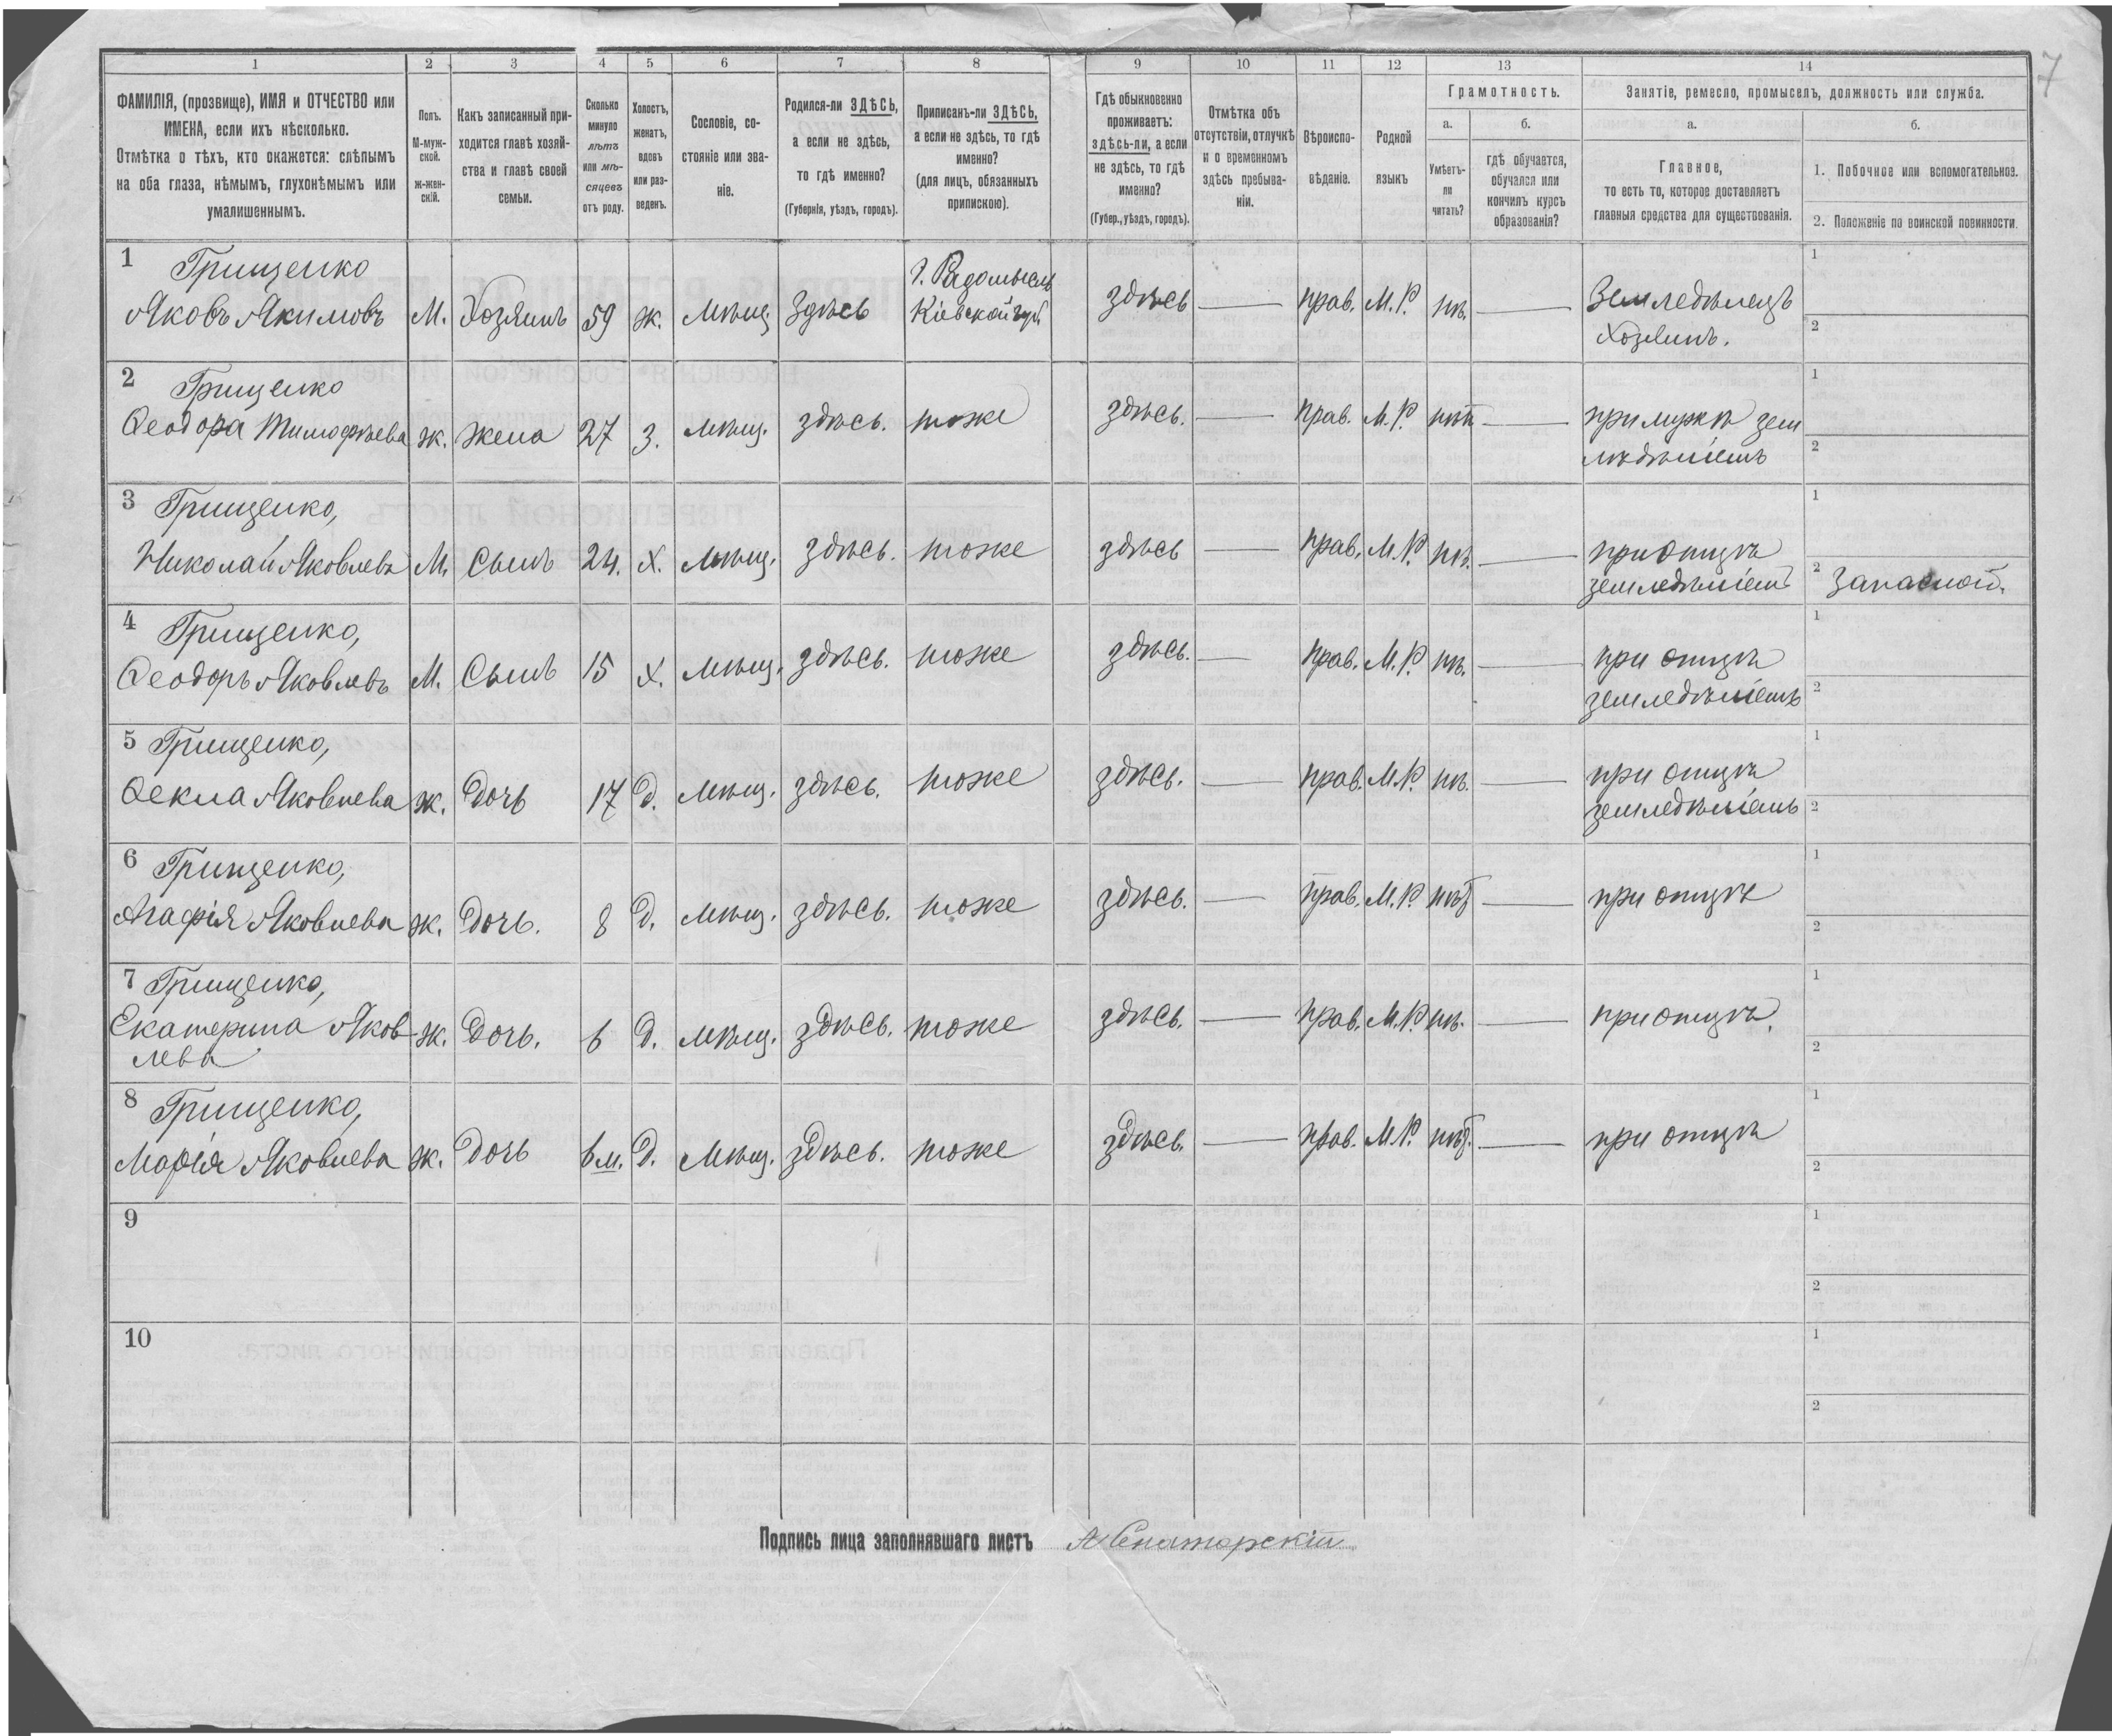 7
1 2 3 4 5 6 7 8 9 10 11 12 13 14
ФАМИЛІЯ, (прозвище), ИМЯ и ОТЧЕСТВО или
ИМЕНА, если ихъ нѣсколько.
Отмѣтка о тѣхъ, кто окажется: слѣпымъ
на оба глаза, нѣмымъ, глухонѣмымъ или
умалишеннымъ.
Полъ.
М-муж-
ской.
ж-жен-
скій.
Какъ записанный при-
ходится главѣ хозяй-
ства и главѣ своей
семьи.
Сколько
минуло
лѣтъ
или мѣ-
сяцевъ
отъ роду.
Холостъ,
женатъ,
вдовъ
или раз-
веденъ.
Сословіе, со-
стояніе или зва-
ніе.
Родился-ли ЗДѢСЬ,
а если не здѣсь,
то гдѣ именно?
(Губернія, уѣздъ, городъ).
Приписанъ-ли ЗДѢСЬ,
а если не здѣсь, то гдѣ
именно?
(для лицъ, обязанныхъ
припискою).
Гдѣ обыкновенно
проживаетъ:
здѣсь-ли, а если
не здѣсь, то гдѣ
именно?
(Губер., уѣздъ, городъ).
Отмѣтка объ
отсутствіи, отлучкѣ
и о временномъ
здѣсь пребыва-
ніи.
Вѣроиспо-
вѣданіе.
Родной
языкъ
Грамотность.
а.
Умѣетъ-
ли
читать?
б.
гдѣ обучается,
обучался или
кончилъ курсъ
образованія?
Занятіе, ремесло, промыселъ, должность или служба.
а.
Главное,
то есть то, которое доставляетъ
главныя средства для существованія.
б.
1. Побочное или вспомогательное.
2. Положеніе по воинской повинности.
1 Грищенко
Яковъ Якимовъ М. Хозяинъ 59 ж. мѣщ. Здѣсь
г. Радомысль
Кіевской губ.
здѣсь — прав. М.Р. нѣ. — Земледѣлецъ
хозяинъ.
1
2
2 Грищенко
Ѳеодора Тимофѣева ж. жена 27 З. мѣщ. здѣсь. тоже здѣсь. — прав. М.Р. нѣт — при мужѣ зем
ледѣліемъ
1
2
3 Грищенко,
Николай Яковлевъ М. Сынъ 24. х. мѣщ. здѣсь. тоже здѣсь — прав. М.Р. нѣ. — при отцѣ
земледѣліемъ
1
2 Запасной.
4 Грищенко,
Ѳеодоръ Яковлевъ М. Сынъ 15 х. мѣщ. здѣсь. тоже здѣсь. — прав. М.Р. нѣ. — при отцѣ
земледѣліемъ
1
2
5 Грищенко,
Ѳекла Яковлева ж. Дочь 17 Д. мѣщ. здѣсь. тоже здѣсь. — прав. М.Р. нѣ. — при отцѣ
земледѣліемъ
1
2
6 Грищенко,
Агафія Яковлева ж. Дочь. 8 Д. мѣщ. здѣсь. тоже здѣсь. — прав. М.Р. нѣт — при отцѣ
1
2
7 Грищенко,
Екатерина Яков
лева
ж. Дочь. 6 Д. мѣщ. здѣсь. тоже здѣсь. — прав. М.Р. нѣ. — при отцѣ.
1
2
8 Грищенко,
Марія Яковлева ж. Дочь 6 м. Д. мѣщ. здѣсь. тоже здѣсь. — прав. М.Р. нѣт. — при отцѣ
1
2
9
1
2
10
1
2
Подпись лица заполнявшаго листъ А Сенаторскій